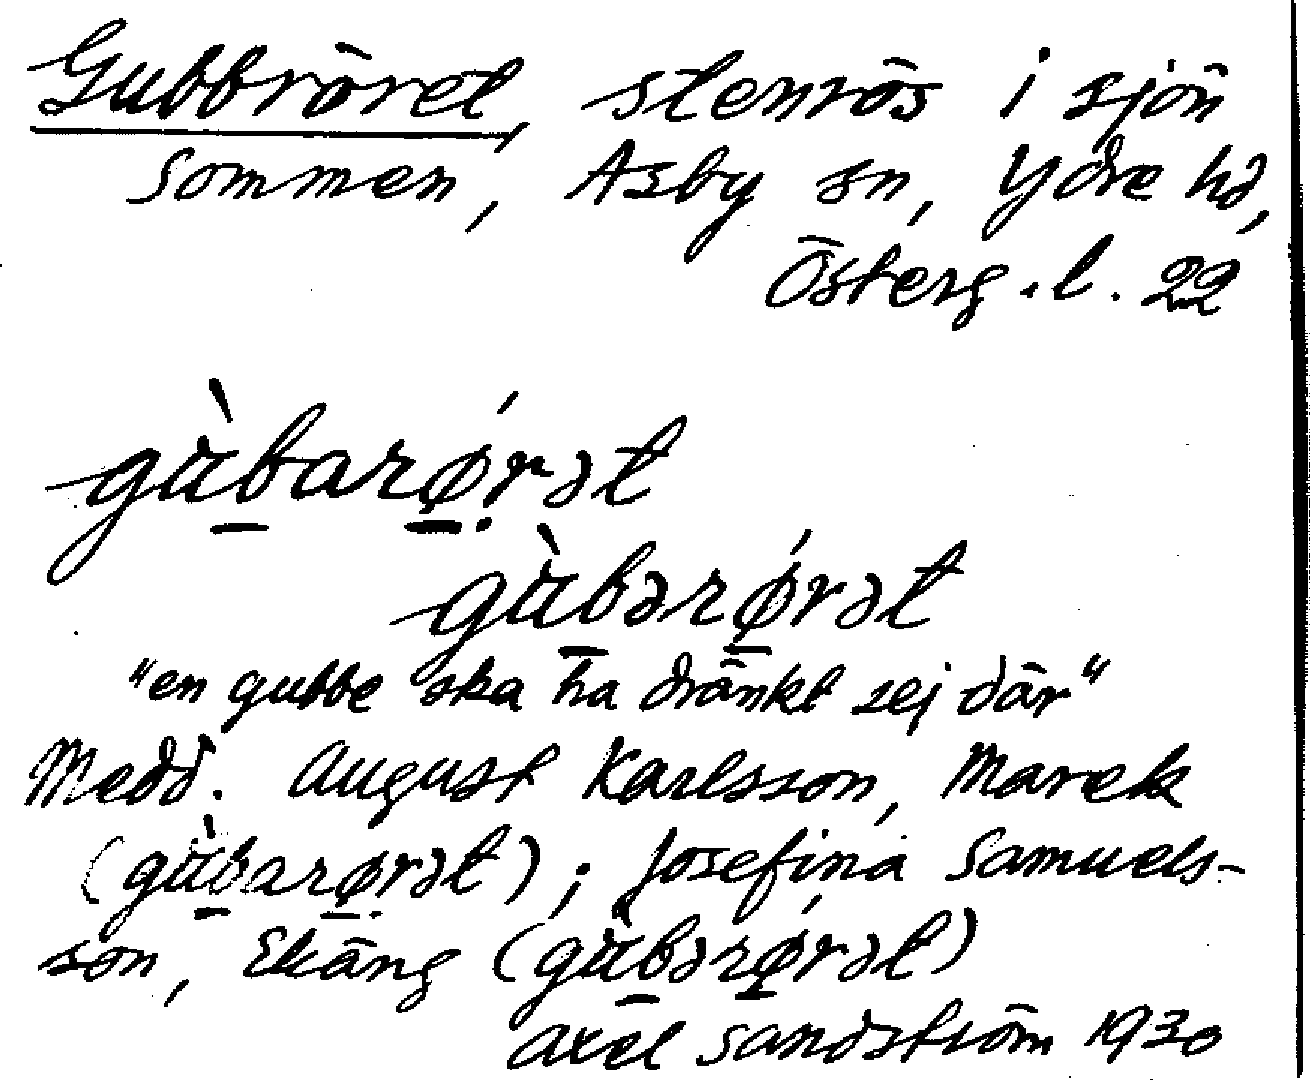 Gubbröret, stenrös i sjön
Sommen, Asby sn, Ydre hd,
Österg.l. 22
gùbarǿrət
gùbərǿrət
"en gubbe ska ha dränkt sej där"
Medd. August Karlsson, Marek
(gùbarǿrət); Josefina Samuels-
son, Ekäng (gùbərǿrət)
Axel Sandström 1930